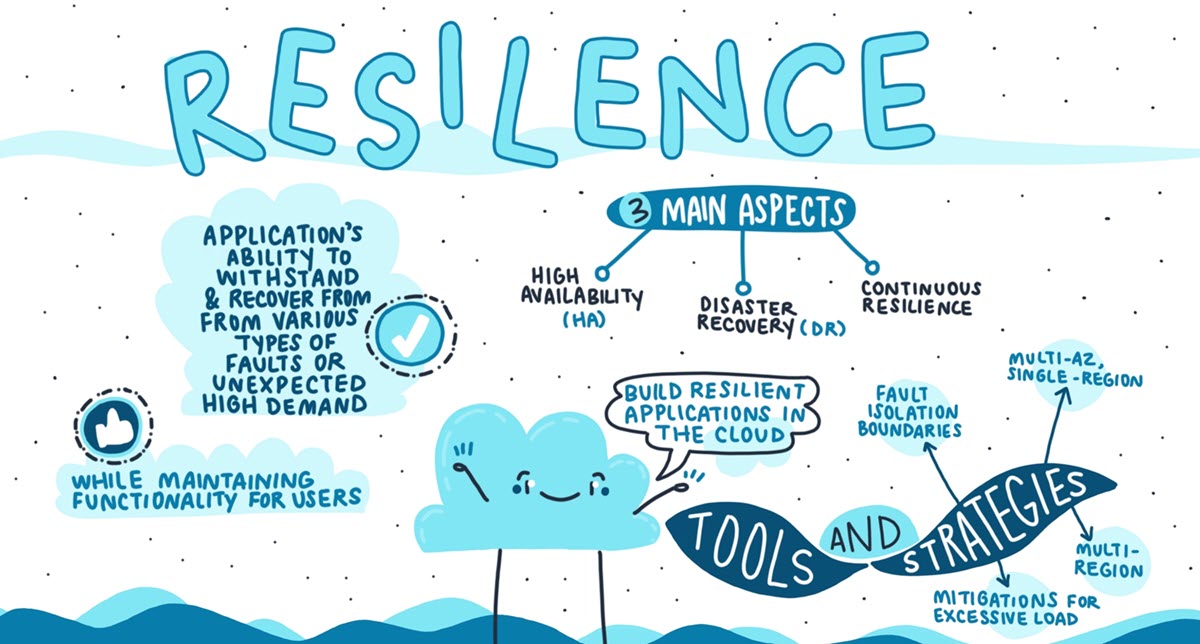 RESILENCE
APPLICATION'S
ABILITY TO
WITHSTAND
& RECOVER FROM
FROM VARIOUS
TYPES OF
FAULTS OR
UNEXPECTED
HIGH DEMAND
WHILE MAINTAINING
FUNCTIONALITY FOR USERS
3 MAIN ASPECTS
HIGH
AVAILABILITY
(HA)
DISASTER
RECOVERY (DR)
CONTINUOUS
RESILIENCE
BUILD RESILIENT
APPLICATIONS IN
THE CLOUD
TOOLS AND STRATEGIES
FAULT
ISOLATION
BOUNDARIES
MULTI-AZ,
SINGLE-REGION
MULTI-
REGION
MITIGATIONS FOR
EXCESSIVE LOAD